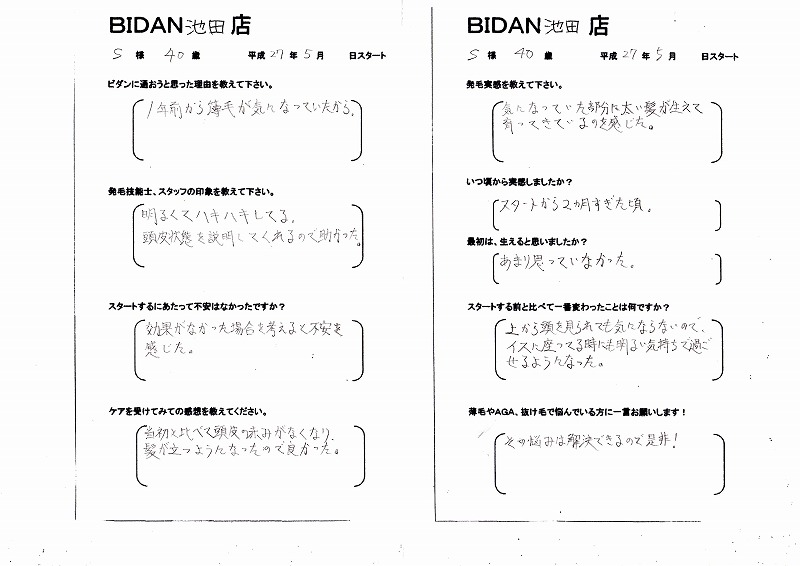 BIDAN池田店
S 様 40 歳 平成 27 年 5 月 日スタート
ビダンに通おうと思った理由を教えて下さい。
1年前から薄毛が気になっていたから。
発毛技能士、スタッフの印象を教えて下さい。
明るくてハキハキしてる。
頭皮状態を説明してくれるので助かった。
スタートするにあたって不安はなかったですか?
効果がなかった場合を考えると不安を
感じた。
ケアを受けてみての感想を教えてください。
当初と比べて頭皮の赤みがなくなり、
髪が立つようになったので良かった。
BIDAN池田店
S 様 40 歳 平成 27 年 5 月 日スタート
発毛実感を教えて下さい。
気になっていた部分に太い髪が生えて
育ってきているのを感じた。
いつ頃から実感しましたか?
スタートから2ヵ月すぎた頃。
最初は、生えると思いましたか?
あまり思っていなかった。
スタートする前と比べて一番変わったことは何ですか?
上から頭を見られても気にならないので、
イスに座ってる時にも明るい気持ちで過ご
せるようになった。
薄毛やAGA、抜け毛で悩んでいる方に一言お願いします!
その悩みは解決できるので是非!